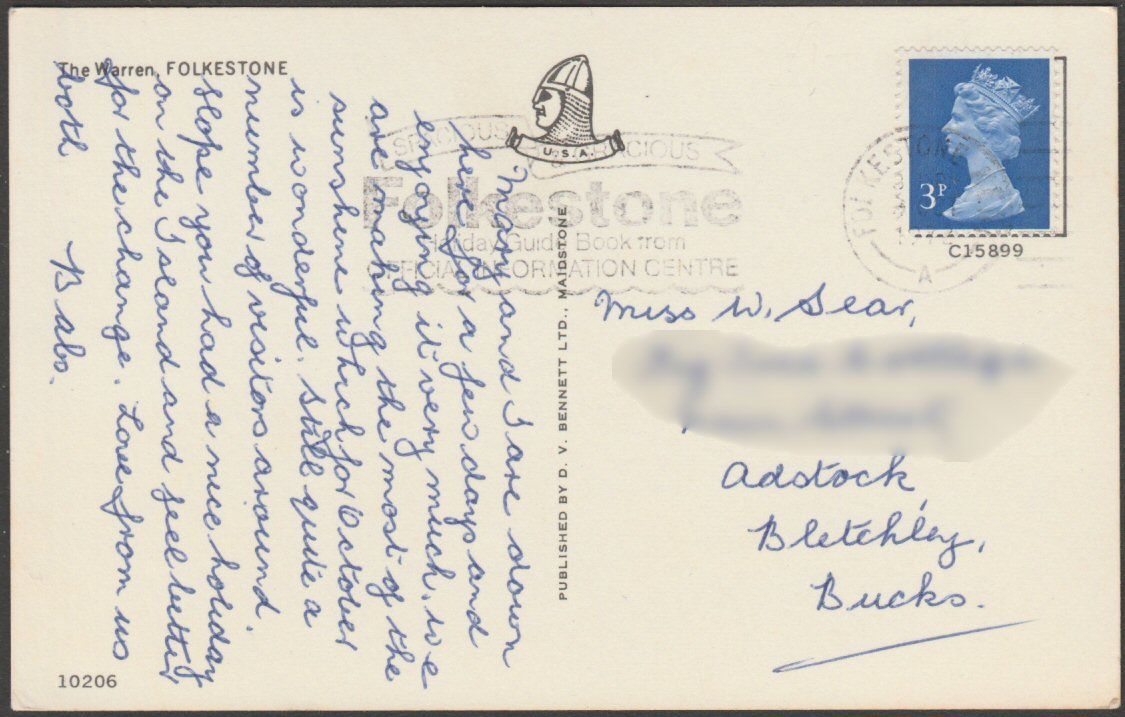 The Warren, FOLKESTONE
U.S.A.
SPACIOUS GRACIOUS
Folkestone
Holiday Guide Book from
OFFICIAL INFORMATION CENTRE
FOLKESTONE
A
3P
C15899
Mary and I are down
here for a few days and
enjoying it very much. We
are making the most of the
sunshine which for October
is wonderful. Still quite a
number of visitors around.
Hope you had a nice holiday
on the Island and feel better
for the change. Love from us
both Babs.
PUBLISHED BY D. V. BENNETT LTD., MAIDSTONE
Miss W. Sear,
Adstock,
Bletchley,
Bucks.
10206